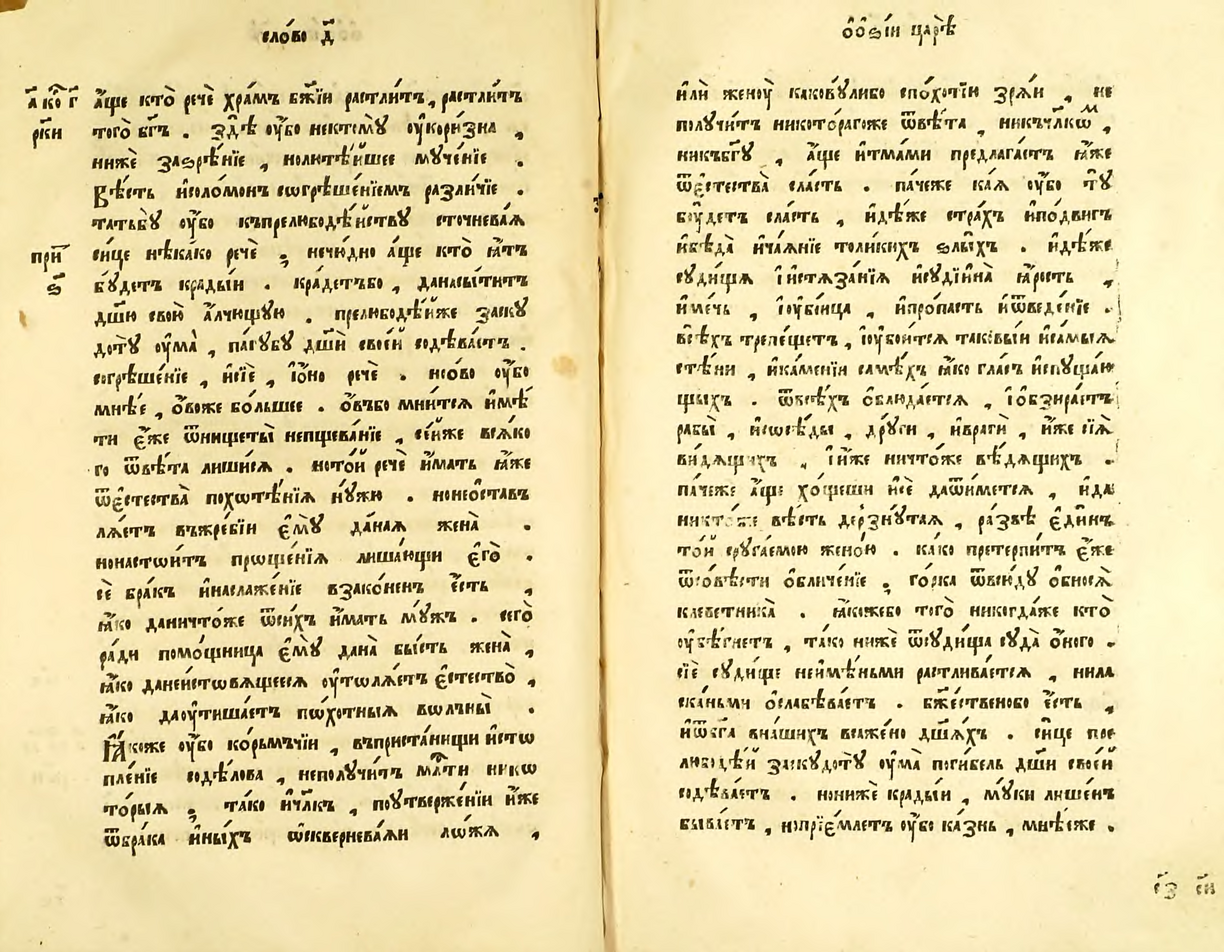 сло́во д҃
а҃ ко҃ г҃ а҆́ще кто̀ речѐ хра́мъ бж҃їи растли́тъ, растли́тъ
рг҃и того̀ бг҃ъ . здѣ̀ ᲂу҆́бо нектомꙋ̀ ᲂу҆кори́зна ,
нижѐ заз̾рѣ́нїе , нолитѣ́йшее мꙋче́нїе .
Вѣ́сть и҆соломо́нъ сѡгрѣше́нїемъ разли́чїе .
татьбꙋ̀ ᲂу҆́бо къпрелюбодѣ́йствꙋ сточнева́ѧ
при҃ си́це нѣ́како речѐ ; нечю́дно а҆́ще кто̀ ꙗ҆́тъ
ѕ҃ бꙋ́детъ кра́дыи . кра́детъбо , данасы́титъ
дш҃ю свою̀ а҆́лчющꙋю . прелюбодѣ́йже заскꙋ
дотꙋ̀ ᲂу҆ма̀ , па́гꙋбꙋ дш҃ѝ свое́й содѣва́етъ .
согрѣше́нїе , и҆сїѐ , і҆ѻ́но речѐ . но о҆́во ᲂу҆́бо
мнѣ́е , о҆́воже бо́льшее . о҆́въбо мни́тсѧ и҆мѣ́
ти є҆́же ѿнищеты̀ непщева́нїе , се́йже всѧ́ко
го ѿвѣ́та лиши́сѧ . но то́й речѐ и҆́мать ꙗ҆́же
ѿє҆стества̀ похѡтѣ́нїѧ нꙋ́жи . нонеѡ҆ста́в
лѧ́етъ въжре́бїи є҆мꙋ̀ да́наѧ жена̀ .
нонастои́тъ прѡще́нїѧ лиша́ющи є҆го̀ .
се́ бра́къ и҆наслажде́нїе взако́ненъ є҆́сть ,
ꙗ҆́ко даничто́же ѿси́хъ и҆́мать мꙋ́жъ . сего̀
ра́ди помо́щница є҆мꙋ̀ дана̀ бы́сть жена̀ ,
ꙗ҆́ко данеи́стѡвѧщеесѧ ᲂу҆тѡлѧ́етъ є҆стество̀ ,
ꙗ҆́ко даᲂу҆тиша́етъ пѡ́хотныѧ вѡлны̀ .
Ꙗ҆́коже ᲂу҆́бо ко́рьмъчїи , въприста́нищи и҆стѡ
пле́нїе содѣ́лова , неполꙋчи́тъ мл҃ти никѡ
то́рыѧ ; та́ко и҆чл҃къ , поꙋтверже́нїи и҆́же
ѿбра́ка и҆́ныхъ ѡ҆скверневаѧи лѡ́жѧ ,
ѻ҆ѻ҆ѕі́и царѣ̀
и҆лѝ женꙋ̀ каковꙋ́либо спо́хотїи зрѧ́и , не
полꙋчи́тъ никото́рагоже ѿвѣ́та , никъчл҃кѡмъ ,
никъбг҃ꙋ , а҆́ще и҆тма́ми предлага́етъ ꙗ҆́же
ѿє҆стества̀ сла́сть . па́чеже ка́ѧ ᲂу҆́бо тꙋ̀
бꙋ́детъ сла́сть , и҆дѣ́же стра́хъ и҆по́двигъ
и҆бѣда̀ и҆ча́ѧнїе толи́кихъ ѕлы́хъ . и҆дѣ́же
сꙋди́щѧ і҆истѧза́нїѧ и҆сꙋдїина̀ ꙗ҆́рость ,
и҆ме́чь , і҆ᲂу҆бі́ица , и҆про́пасть и҆ѿведе́нїе .
всѣ́хъ трепе́щетъ , і҆ᲂу҆бои́тсѧ таковы́и и҆са́мыѧ
стѣ́ни , и҆ка́менїи самѣ́хъ ꙗ҆́ко гла́съ и҆спꙋща́ю
щыхъ . ѿвсѣ́хъ ѡ҆блюда́етсѧ , і҆ѡ҆бзира́етъ
рабы̀ , и҆сѡсѣ́ды , дрꙋ́ги , и҆врагѝ , и҆́же сїѧ̀
ви́дѧщихъ , і҆и҆́же ничто́же вѣ́дѧщихъ .
па́чеже а҆́ще хо́щеши и҆сѐ даѿи́метсѧ , и҆да
никто́же вѣ́сть де́рзнꙋтаѧ , ра́звѣ є҆ди́нъ
то́й срꙋга́емою жено́ю . ка́ко претерпи́тъ є҆́же
ѿсо́вѣсти ѡ҆бличе́нїе ; го́рка ѿвсю́дꙋ ѡ҆бносѧ̀
клеветника̀ . ꙗ҆́коже бо того̀ никогда́же кто̀
ᲂу҆бѣ́гнетъ , та́ко нижѐ ѿсꙋди́ща сꙋда̀ о҆́ного .
сїѐ сꙋди́ще неимѣ́ньми растлива́етсѧ , нила
ска́ньми ѡ҆слабѣва́етъ . бж҃е́ственобо є҆́сть ,
и҆ѿбг҃а вна́шихъ всажено̀ дш҃а́хъ . си́це пре
любодѣ́й заскꙋдотꙋ̀ ᲂу҆ма̀ поги́бель дш҃ѝ свое́й
содѣва́етъ . нонижѐ кра́дыи , мꙋ́ки лише́нъ
быва́етъ , нопрїе́млетъ ᲂу҆́бо ка́знь , мнѣ́еже .